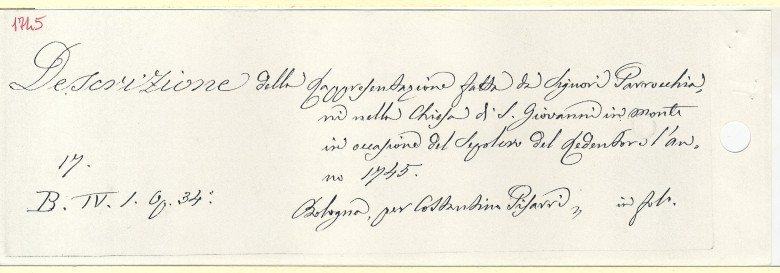 1745
Descrizione della Rappresentazione fatta da Signori Parrocchia,
ni nella Chiesa di S. Giovanni in Monte
in occasione del Sepolcro del Redentore l'an,
no 1745.
17.
B. IV. 1. Op. 34a.
Bologna, per Costantino Pisarri,, in fol.